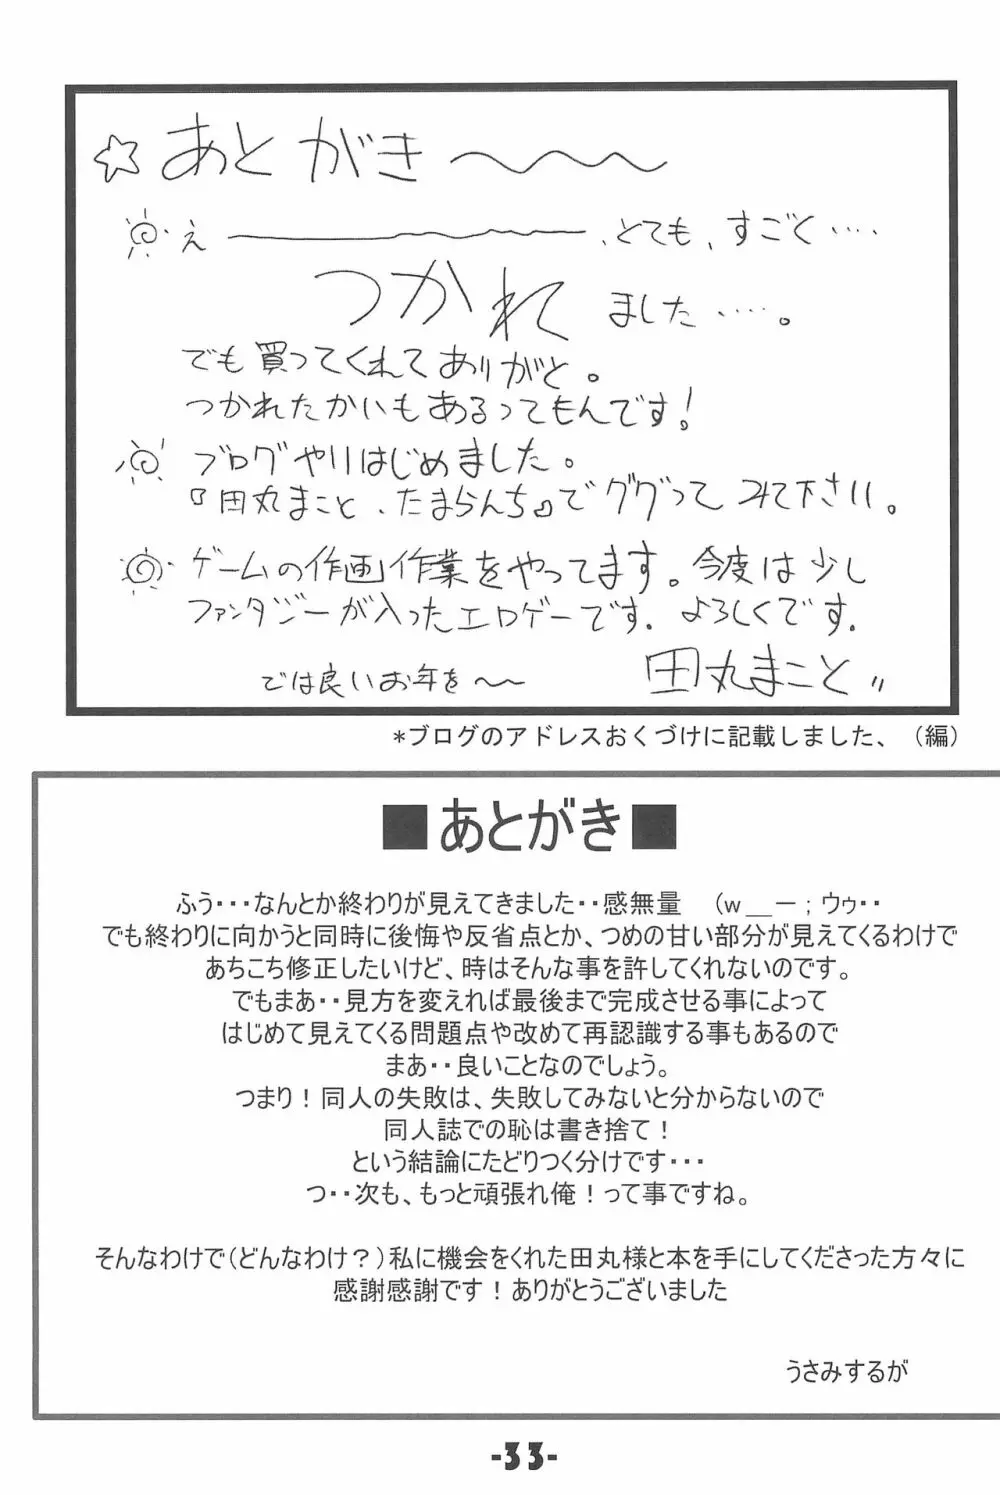 ☆あとがき〜〜〜
え――――――、とても、すごく‥‥
つかれました‥‥。
でも買ってくれてありがと。
つかれたかいもあるってもんです!
ブログやりはじめました。
『田丸まこと、たまらんち』でググってみて下さい。
ゲームの作画作業をやってます。今度は少し
ファンタジーが入ったエロゲーです. よろしくです.
では良いお年を〜〜
田丸まこと〃
*ブログのアドレスおくづけに記載しました、(編)
■あとがき■
ふう・・・なんとか終わりが見えてきました・・感無量　(w__ー;ウゥ・・
でも終わりに向かうと同時に後悔や反省点とか、つめの甘い部分が見えてくるわけで
あちこち修正したいけど、時はそんな事を許してくれないのです。
でもまあ・・見方を変えれば最後まで完成させる事によって
はじめて見えてくる問題点や改めて再認識する事もあるので
まあ・・良いことなのでしょう。
つまり!同人の失敗は、失敗してみないと分からないので
同人誌での恥は書き捨て!
という結論にたどりつく分けです・・・
つ・・次も、もっと頑張れ俺!って事ですね。
そんなわけで(どんなわけ?)私に機会をくれた田丸様と本を手にしてくださった方々に
感謝感謝です!ありがとうございました
うさみするが
-33-